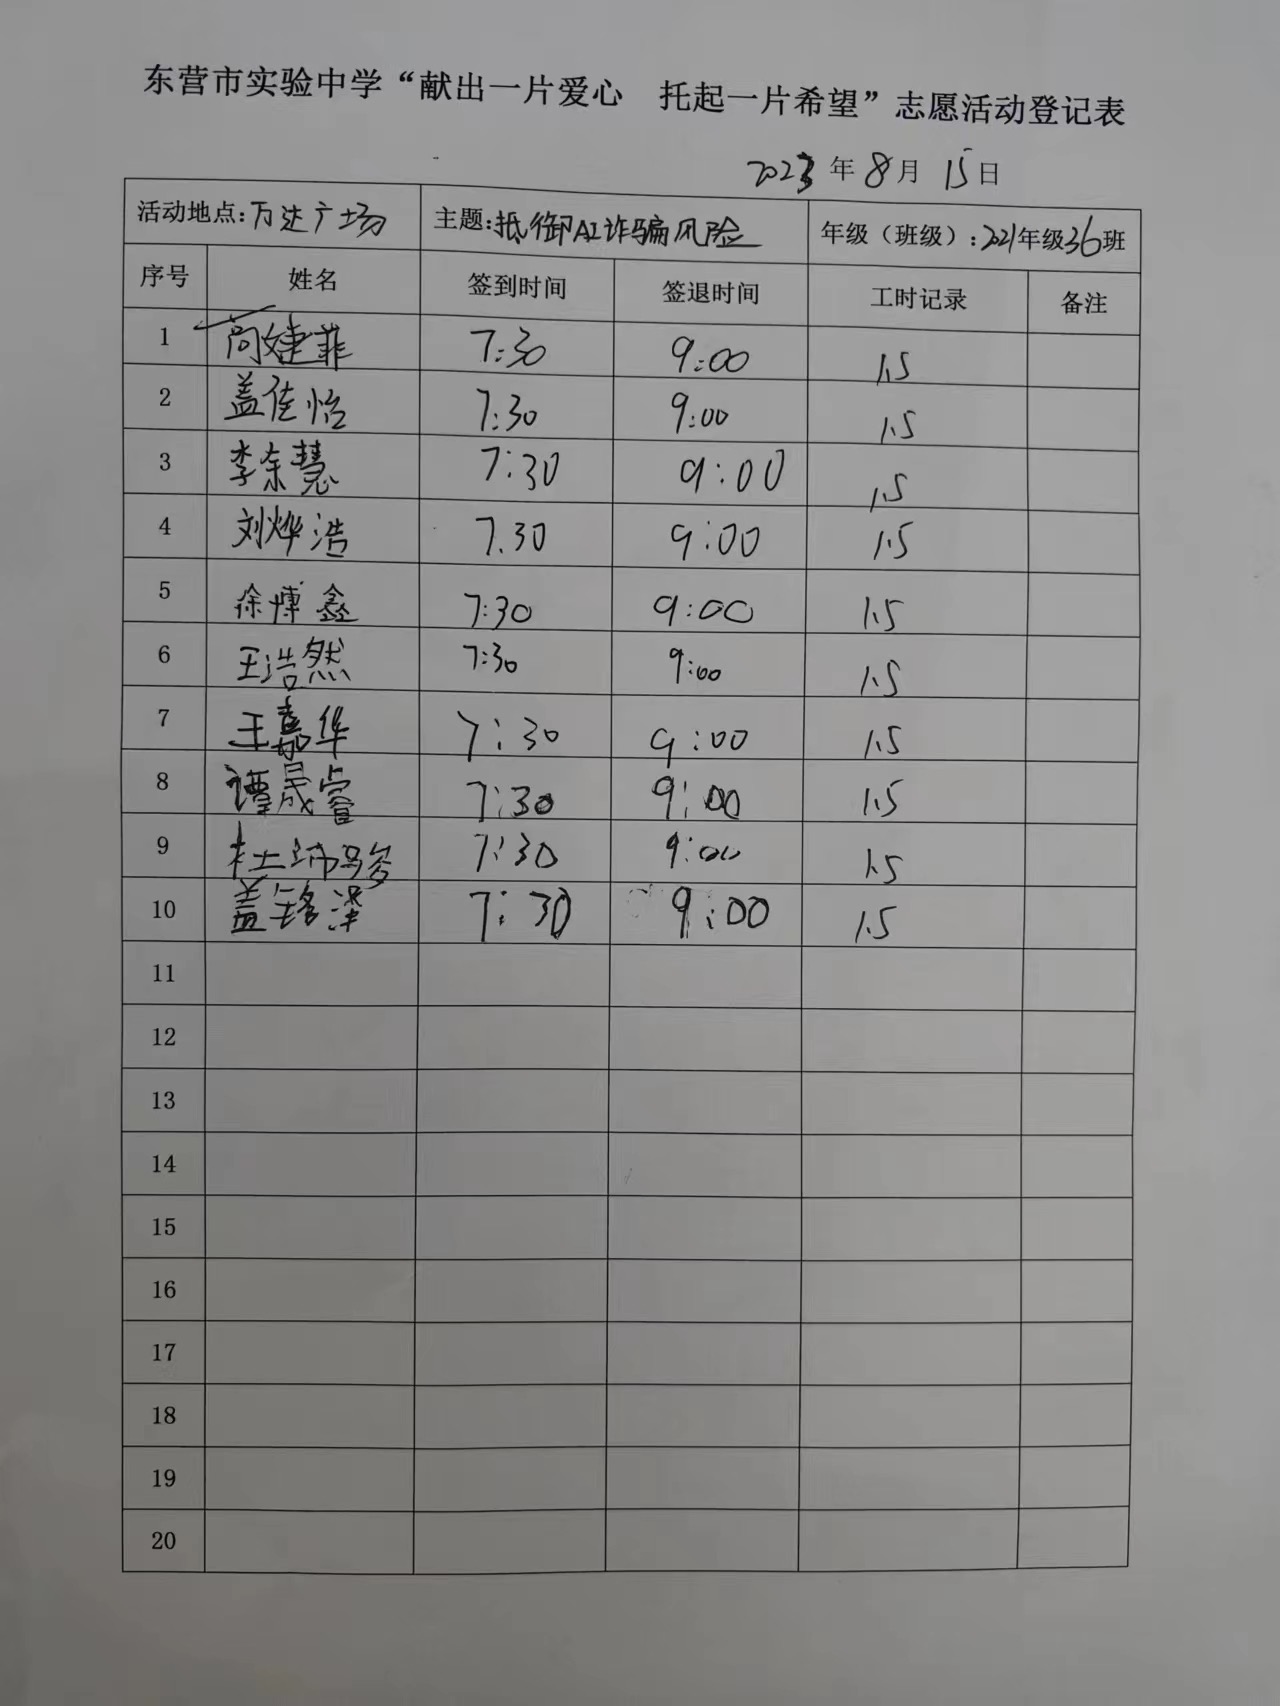 东营市实验中学“献出一片爱心 托起一片希望”志愿活动登记表
2023年8月15日
活动地点:万达广场 主题:抵御AI诈骗风险 年级（班级）:2021年级36班
序号 姓名 签到时间 签退时间 工时记录 备注
1 尚婕菲 7:30 9:00 1.5
2 盖佳怡 7:30 9:00 1.5
3 李余慧 7:30 9:00 1.5
4 刘烨浩 7.30 9:00 1.5
5 徐博鑫 7:30 9:00 1.5
6 王浩然 7:30 9:00 1.5
7 王嘉华 7:30 9:00 1.5
8 谭晟睿 7:30 9:00 1.5
9 7:30 9:00 1.5
10 7:30 9:00 1.5
11
12
13
14
15
16
17
18
19
20